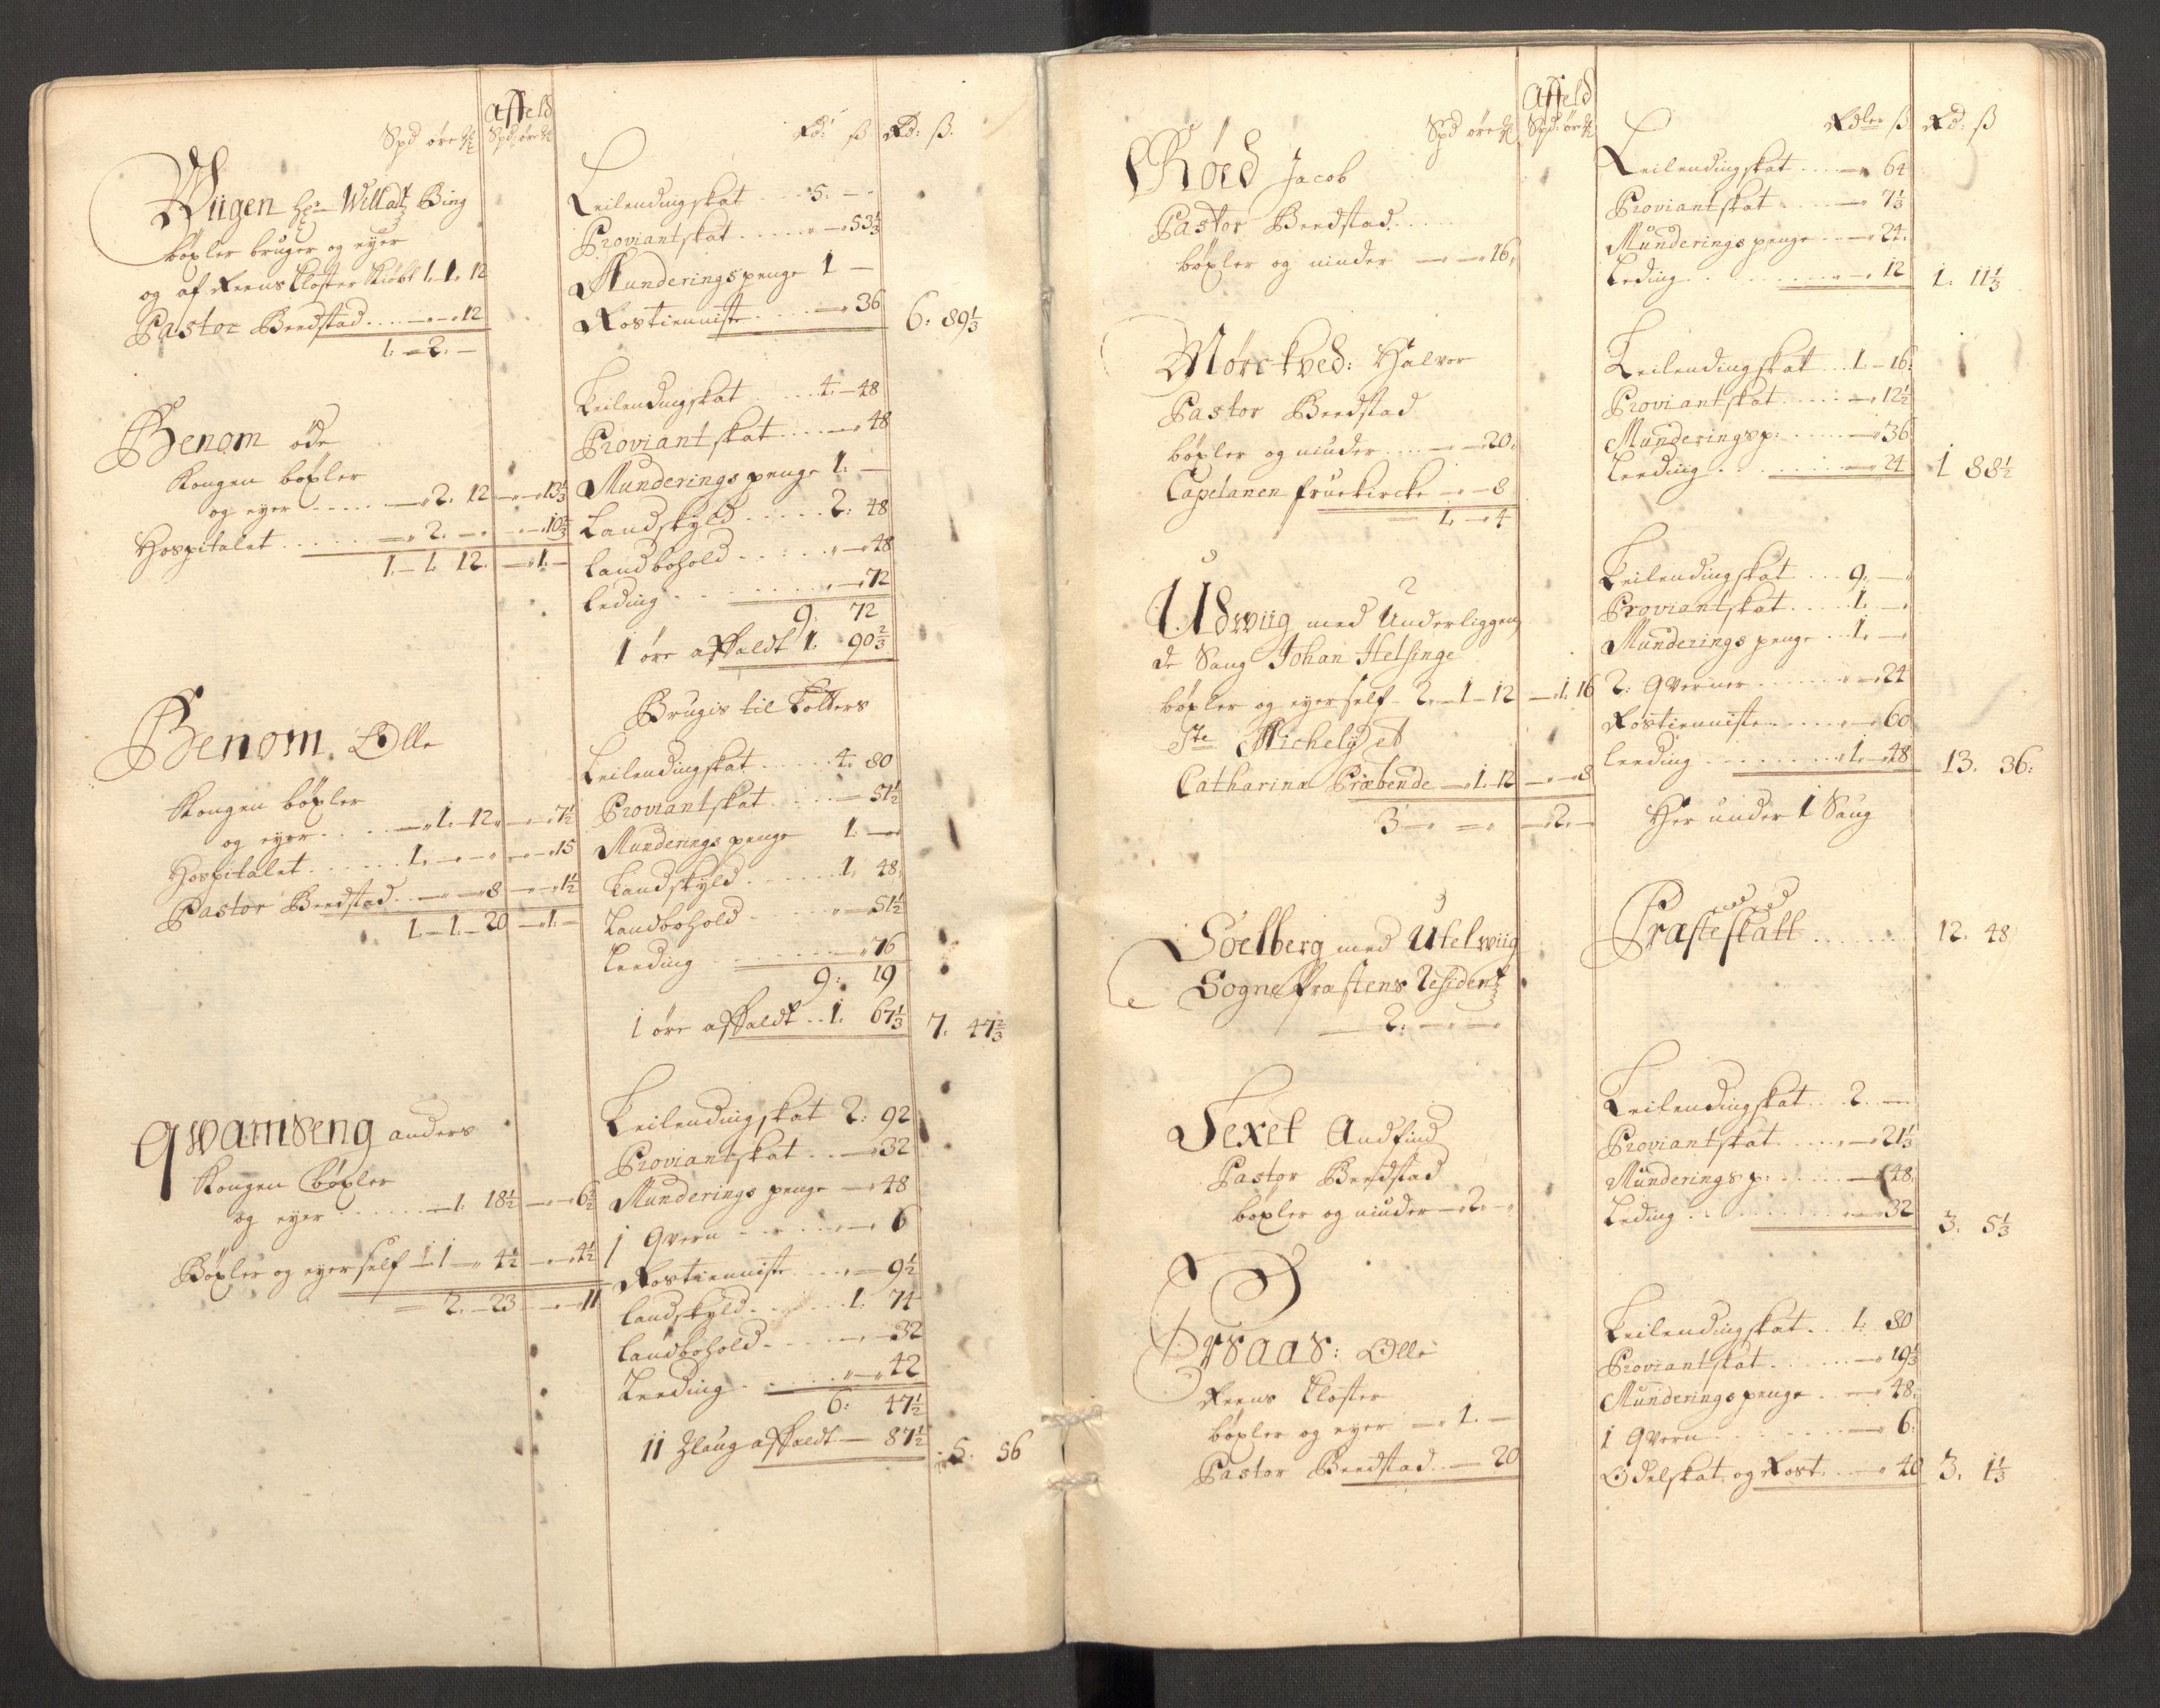 Affeld
Spd øre Spd: øre Rd: ß Rd: ß.
Wiigen Hr Willatz Bing
bøxler bruger og eyer
og af Reens Closter Kiøbt 1. 1. 12
Pastor Beedstad .... 12
1. 2. —
Leilendingskat ... 5. —
Proviantskat ... 53 1/3
Munderingspenge 1 —
Rostienniste ... 36 6: 89 1/3
Benom øde
Kongen bøxler
og eyer ..... 2. 12 — 13 1/3
Hospitalet ..... 2. — 10 2/3
1. 1. 12. — 1. —
Leilendingskat ... 4. 48
Proviantskat ..... 48
Munderingspenge 1. —
Landskyld ..... 2. 48
Landbohold ..... 48
Leding ..... 72
9. 72
1 øre affaldt 1. 90 2/3
Brugis til Kolters
Benom. Olle
Kongen bøxler
og eyer .... 1. 12 — 7 1/2
Hospitalet ..... 1. — 15
Pastor Beedstad .. 8 — 1 1/2
1. 1. 20 — 1. —
Leilendingskat ..... 4. 80
Proviantskat .... 51 1/2
Munderingspenge 1. —
Landskyld ...... 1. 48
Landbohold ..... 51 1/2
Leeding ..... 76
9. 19
1 øre affaldt .. 1. 67 1/3 7. 47 2/3
Qwamseng anders
Kongen Bøxler
og eyer ...... 1. 18 1/2 — 6 1/2
Bøxler og eyer self 1 — 4 1/2 — 4 1/2
2. 23 — 11
Leilendingskat 2. 92
Proviantskat .. 32
Munderingspenge — 48
1 Qvern ..... 6
Rostienniste .... 9 1/2
Landskyld ..... 1. 74
Landbohold ..... 32
Leeding ..... 42
6: 47 1/2
11 Zlaug affaldt — 87 1/2 5. 56
Affeld
Spd øre Spd: øre Rdler ß Rd: ß
Røed Jacob
Pastor Beedstad ....
bøxler og ninder — 16,
Leilendingskat .... 64
Proviantskat .... 7 1/3
Munderingspenge .. 24.
Leding ..... 12 1. 11 1/3
Mørckved: Halvor
Pastor Beedstad
bøxler og ninder .... 20.
Capelanen fruekircke — 8
1. 4
Leilendingskat .. 1. 16.
Proviantskat .... 12 1/2
Munderingsp: .... 36
Leeding ..... 24 1 88 1/2
Udwiig med Underliggen
de Saug Johan Helsinge
bøxler og eyer self 2. 1. 12 — 1. 16
Ste Michely et
Catharina Præbende — 1. 12 — 8
3 — — 2. —
Leilendingskat ... 9. —
Proviantskat .... 1. —
Munderingspenge .. 1. —
2: Qverner ..... 24
Rostienniste .... 60
Leeding ....... 1. 48 13. 36:
Her under 1 Saug
Soelberg med Utelwiig
Sogne Præstens Residentz
2. — —
Præsteskatt ....... 12. 48
Sexet Andfind
Pastor Beedstad
bøxler og ninder — 2. —
Leilendingskat .. 2. —
Proviantskat ... 21 1/3
Munderingsp: .... 48
Leding ..... 32 3. 5 1/3
Aas: Olle
Reens Closter
bøxler og eyer — 1. —
Pastor Beedstad .. 20
Leilendingskat .. 1. 80
Proviantskat ..... 19 1/3
Munderingspenge . 48.
1 Qvern ..... 6.
Odelskat og Rost. .. 40 3. 1 1/3